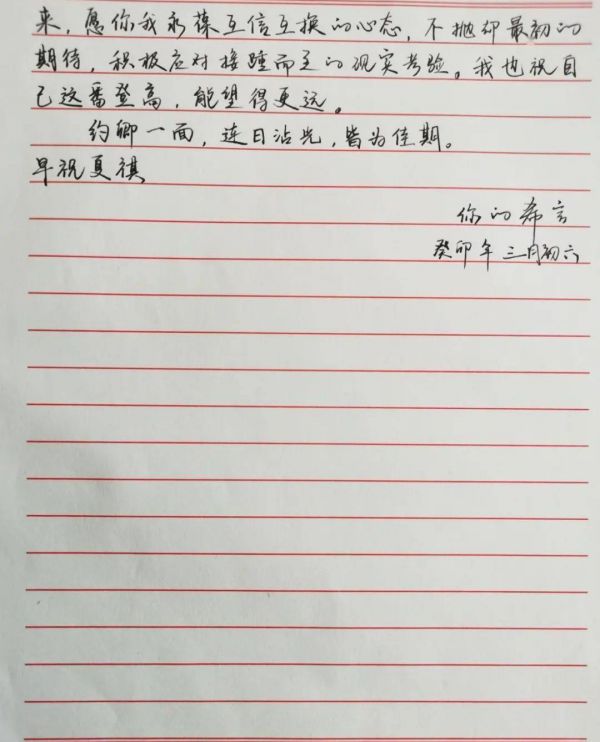 来，愿你我永葆互信互换的心态，不抛却最初的
期待，积极应对接踵而至的现实考验。我也祝自
己这番登高，能望得更远。
约卿一面，连日沾光，皆为佳期。
早祝夏祺
你的希言
癸卯年三月初六